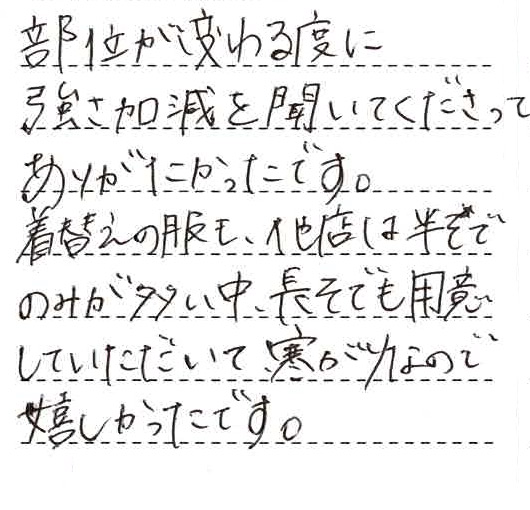 部位が変わる度に
強さ加減を聞いてくださって
ありがたかったです。
着替えの服も、他店は半そで
のみが多い中、長そでも用意
していただいて、寒がりなので
嬉しかったです。